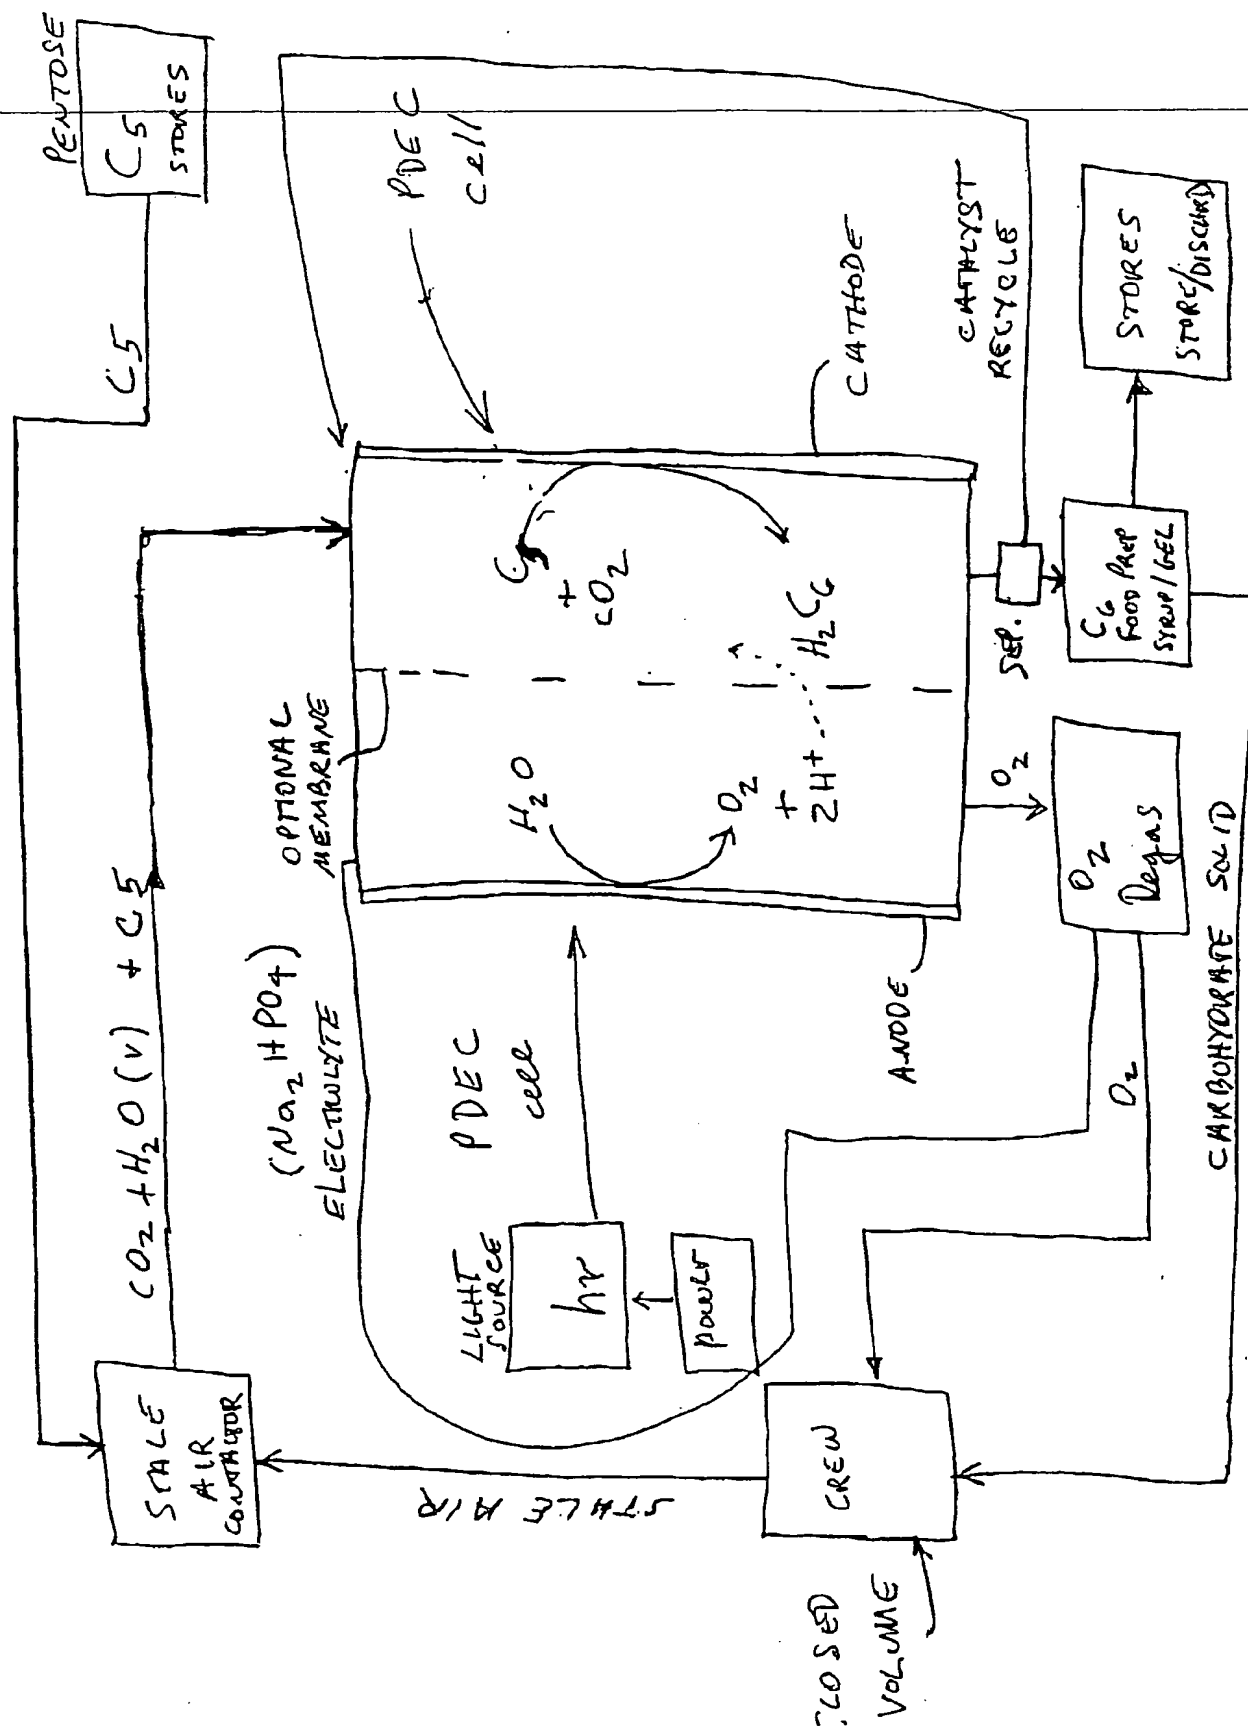 PENTOSE
C5
STORES
C5
CO2 + H2O (v) + C5
STALE
AIR
CONTACTOR
STALE AIR
CLOSED
VOLUME
CREW
(Na2HPO4)
ELECTROLYTE
OPTIONAL
MEMBRANE
PDEC
cell
PDEC
cell
LIGHT
SOURCE
hν
POWER
ANODE
CATHODE
H2O
O2
+
2H+
C5
+
CO2
H2C6
CATALYST
RECYCLE
SEP.
C6
FOOD PREP
SYRUP/GEL
STORES
STORE/DISCARD
O2
O2
Degas
O2
CARBOHYDRATE SOLID